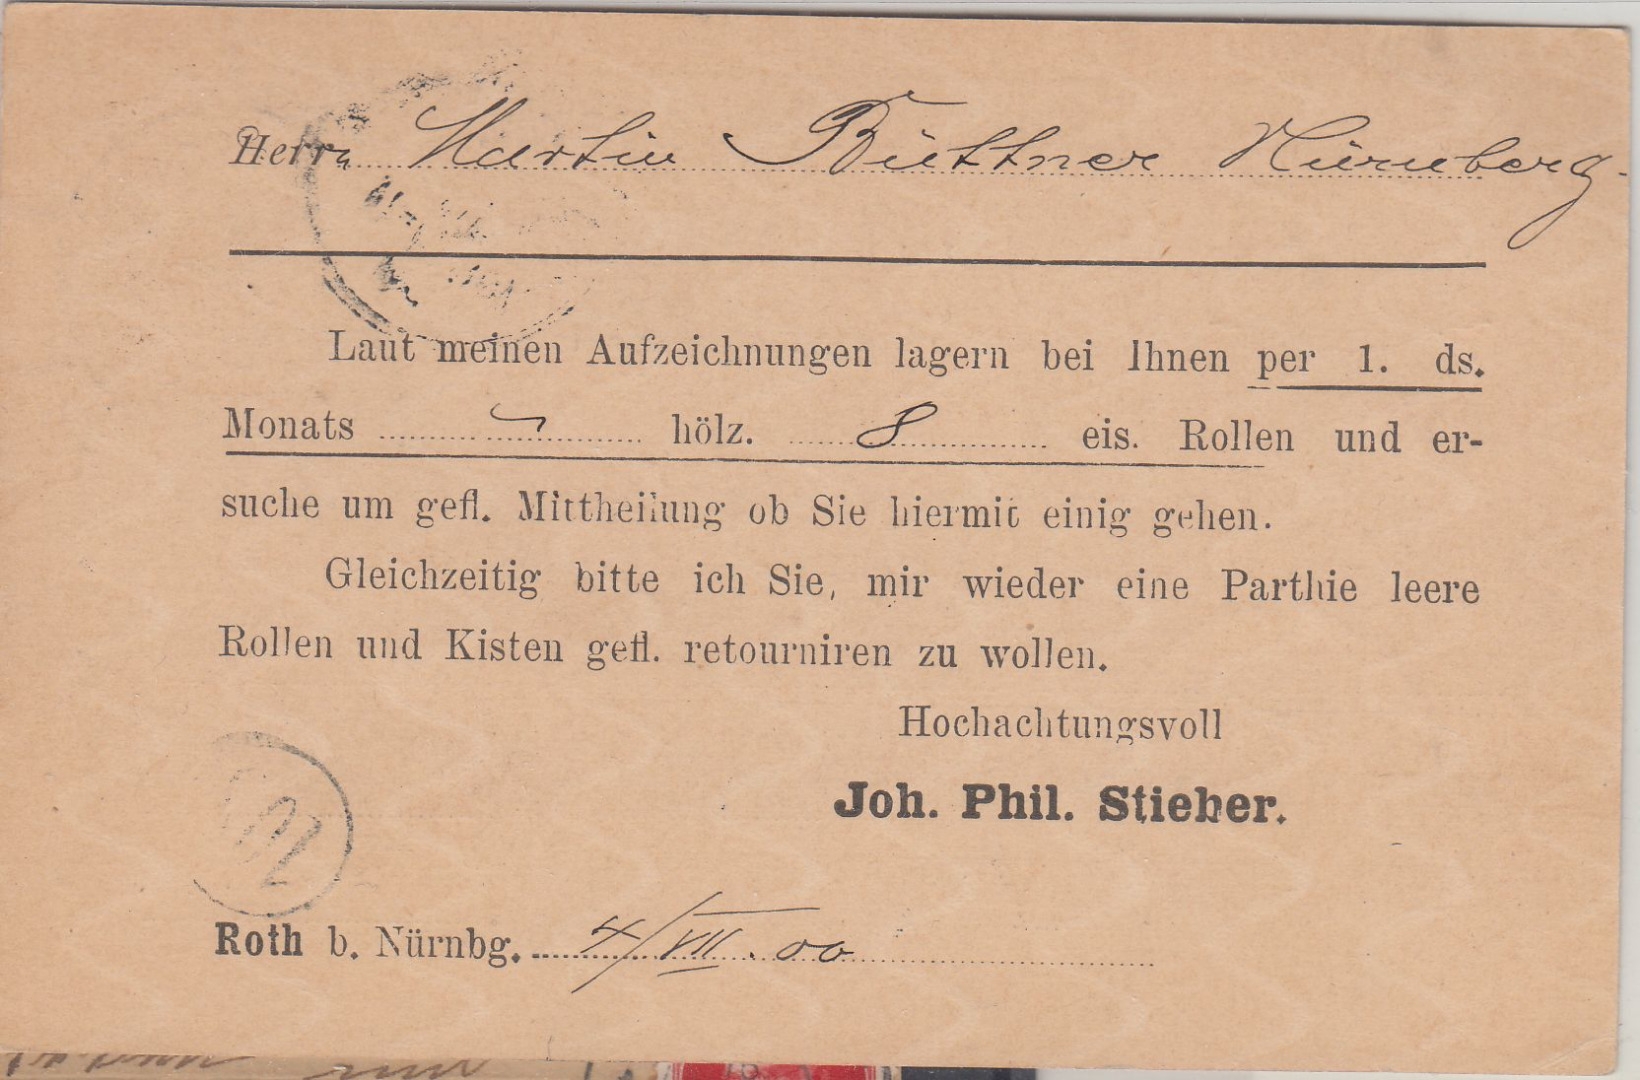 Herrn Martin Büttner Nürnberg.
Laut meinen Aufzeichnungen lagern bei Ihnen per 1. ds.
Monats hölz. 8 eis. Rollen und er-
suche um gefl. Mittheilung ob Sie hiermit einig gehen.
Gleichzeitig bitte ich Sie, mir wieder eine Parthie leere
Rollen und Kisten gefl. retourniren zu wollen.
Hochachtungsvoll
Joh. Phil. Stieber.
Roth b. Nürnbg. 4/VII.00